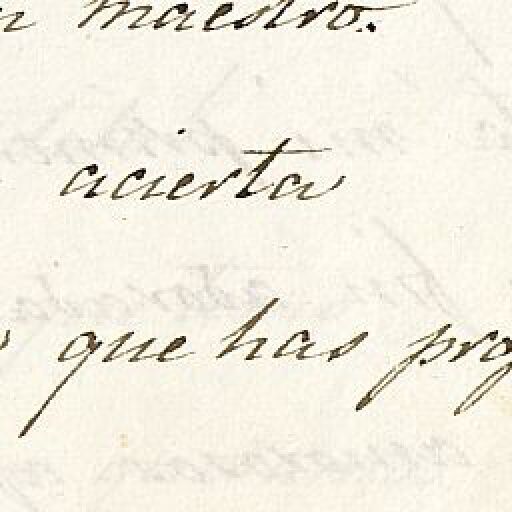 maestro.
acierta
que has